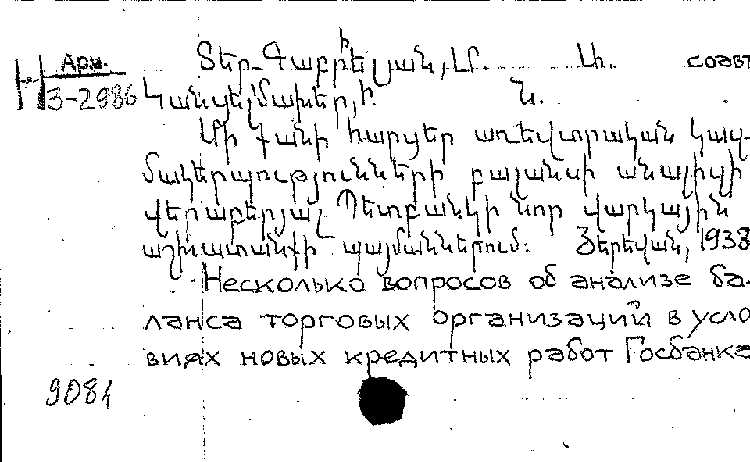 Арм.
Н 3-2986
Տեր-Գաբրիելյան, Մ. Ա. соавт
Ն.
Մի քանի հարցեր առևտրական կազ-
մակերպությունների բալանսի անալիզի
վերաբերյալ Պետբանկի նոր վարկային
աշխատանքի պայմաններում: Յերեվան, 1938
Несколько вопросов об анализе ба-
ланса торговых организаций в усло
виях новых кредитных работ Госбанка
9084